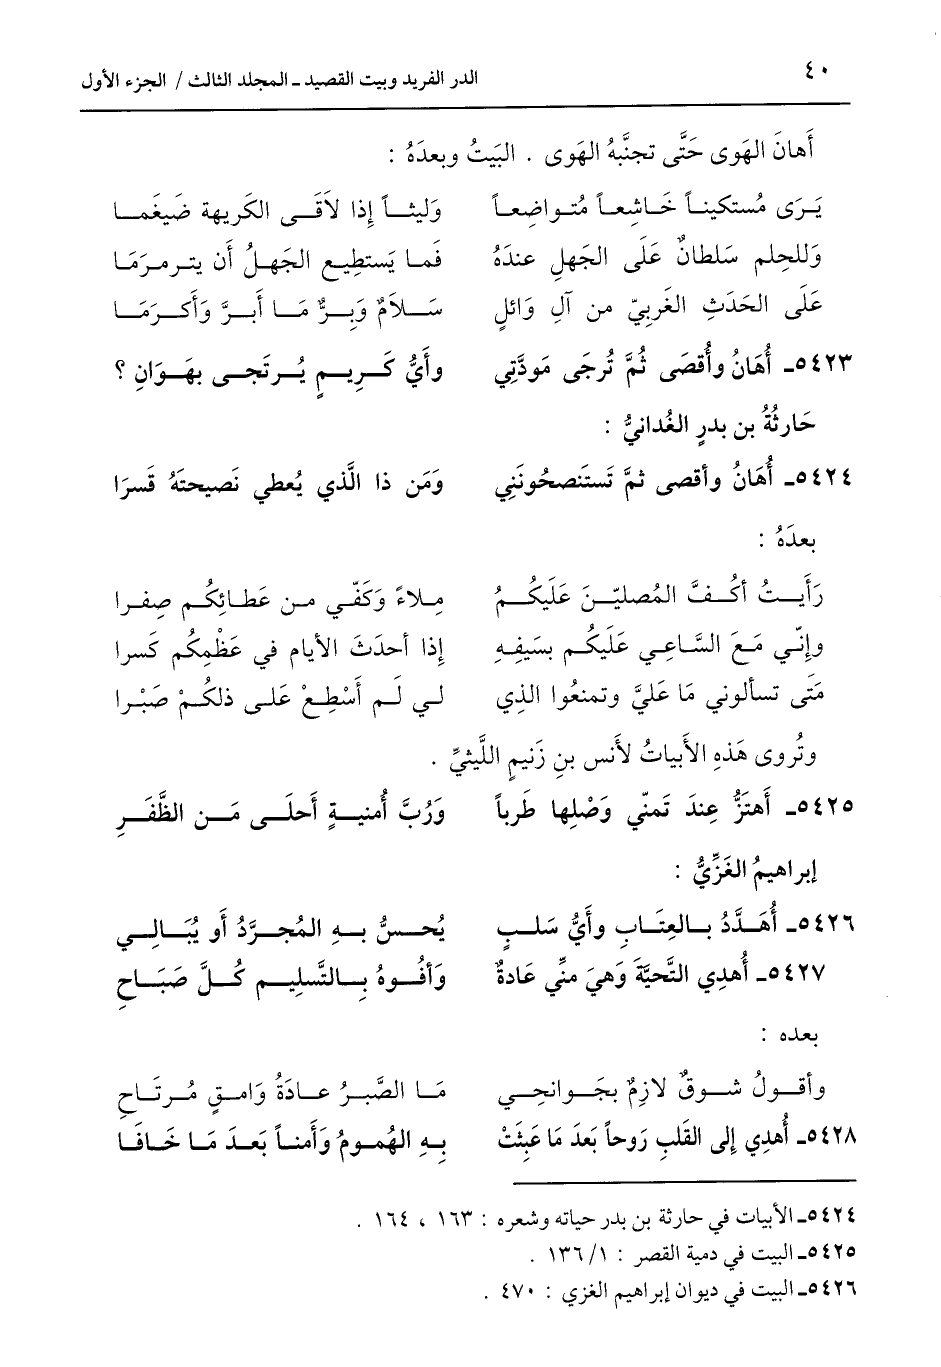 ٤٠
الدر الفريد وبيت القصيد ـ المجلد الثالث / الجزء الأول
أَهانَ الهَوى حَتَّى تجنَّبهُ الهَوى . البَيتُ وبعدَهُ :
يَرَى مُستكيناً خَاشعاً مُتواضعاً وَليثاً إذا لاَقى الكَريهة ضَيغَما
وَللحلم سَلطانٌ عَلى الجَهلِ عندَهُ فَما يَستطيع الجَهلُ أَن يترمرَمَا
عَلَى الحَدَثِ الغَربِيّ من آلِ وَائلٍ سَلاَمٌ وَبِرٌّ مَا أَبرَّ وَأكرَمَا
٥٤٢٣ـ أُهَانُ وأُقصَى ثُمَّ تُرجَى مَودَّتِي وأَيُّ كَريمٍ يُرتجَى بهَوَانِ ؟
حَارثَةُ بن بدرٍ الغُدانيُّ :
٥٤٢٤ـ أُهَانُ وأقصى ثمَّ تَستَنصحُونَنِي وَمَن ذا الَّذي يُعطي نَصيحتهُ قَسرَا
بعدَهُ :
رَأَيتُ أكُفَّ المُصليّنَ عَلَيكُمُ مِلاءً وَكَفّي من عَطائِكُم صِفرا
وإنّي مَعَ السَّاعِي عَلَيكُم بسَيفِهِ إذا أحدَثَ الأيام في عَظْمِكُم كَسرا
مَتَى تسألوني مَا عَليَّ وتمنعُوا الذِي لي لَم أَسْطِعْ عَلى ذلكُمْ صَبْرا
وتُروى هَذهِ الأبياتُ لأنس بنِ زَنيمٍ اللَّيثيِّ .
٥٤٢٥ـ أَهتزُّ عِندَ تمنّي وَصْلِها طَرباً وَرُبَّ أُمنيةٍ أَحلَى مَن الظَّفَرِ
إبراهيمُ الغَزِّيُّ :
٥٤٢٦ـ أُهَدَّدُ بالعِتَابِ وأَيُّ سَلبٍ يُحسنُّ بهِ المُجرَّدُ أَو يُبَالي
٥٤٢٧ـ أُهدِي التَّحيَّةَ وَهيَ منِّي عَادةٌ وَأفُوهُ بالتَّسليم كُلَّ صَبَاحِ
بعده :
وأقولُ شوقٌ لازمٌ بجَوانحِي مَا الصَّبرُ عادَةُ وَامقٍ مُرتَاحِ
٥٤٢٨ـ أُهدِي إلى القَلبِ رَوحاً بَعدَ مَا عَبِثَتْ بِهِ الهُمومُ وَأَمناً بَعدَ مَا خَافَا
٥٤٢٤ـ الأبيات في حارثة بن بدر حياته وشعره : ١٦٣ ، ١٦٤ .
٥٤٢٥ـ البيت في دمية القصر : ١٣٦/١ .
٥٤٢٦ـ البيت في ديوان إبراهيم الغزي : ٤٧٠ .